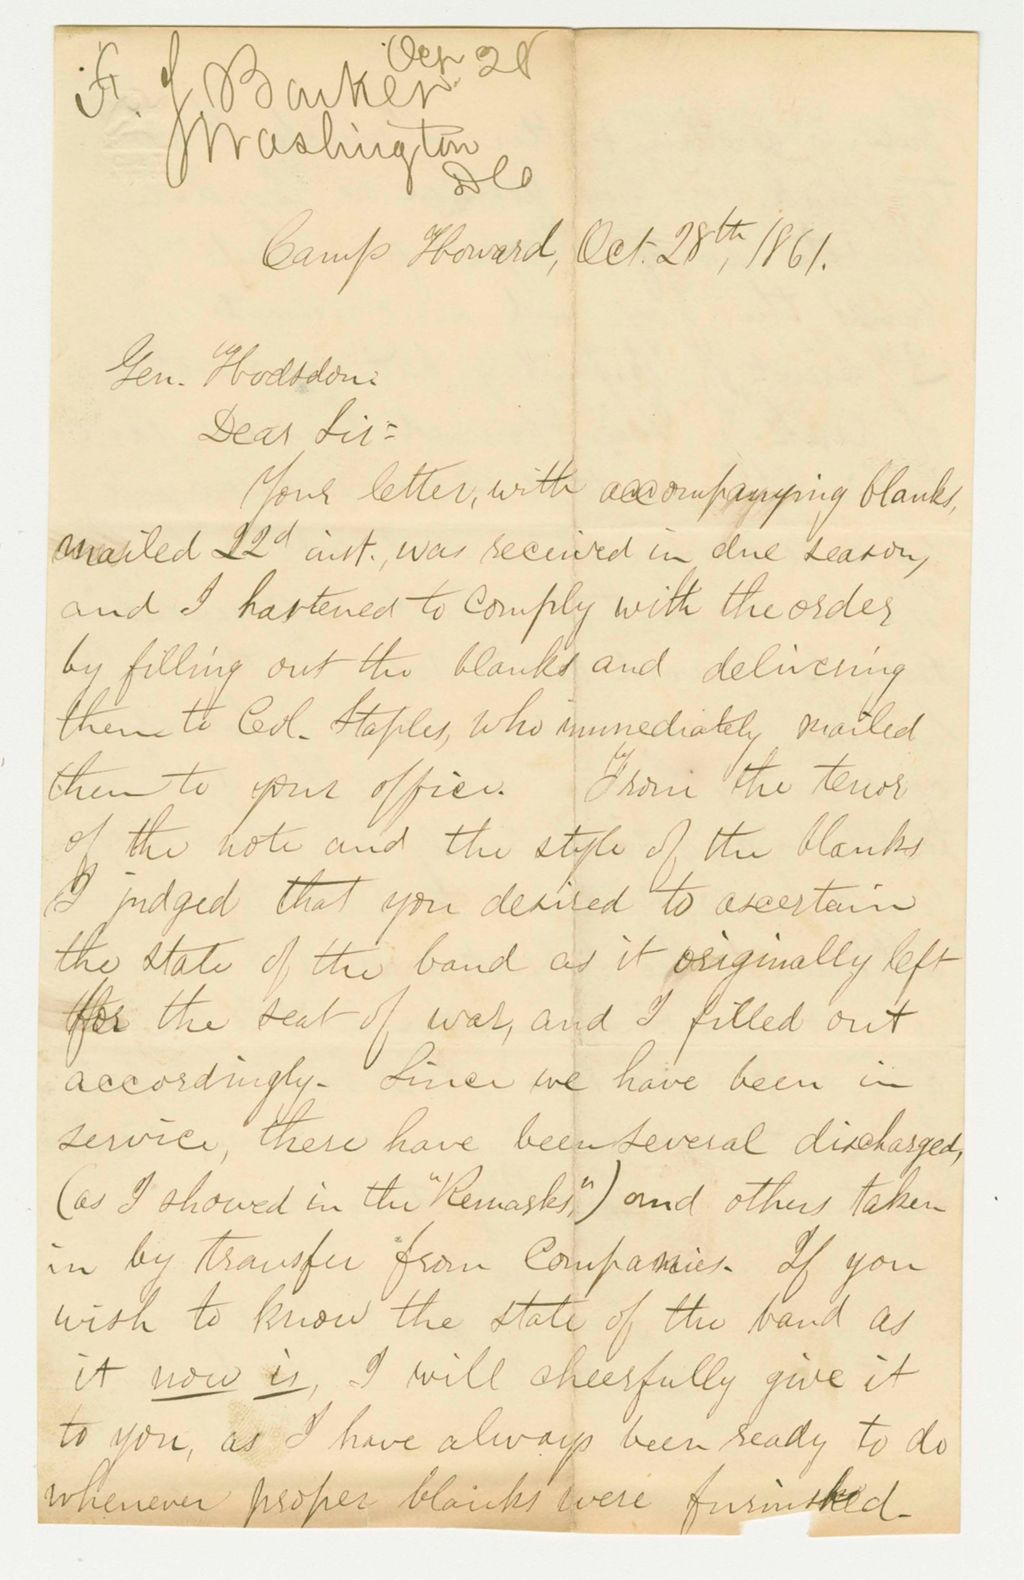 Oct 28
F. J. Barker
Washington
D C
Camp Howard, Oct. 28th, 1861.
Gen. Hodsdon:
Dear Sir=
Your letter, with accompanying blanks,
mailed 22d inst., was received in due season,
and I hastened to comply with the order
by filling out the blanks and delivering
them to Col. Staples, who immediately mailed
them to your office. From the tenor
of the note and the style of the blanks
I judged that you desired to ascertain
the state of the band as it originally left
for the seat of war, and I filled out
accordingly. Since we have been in
service, there have been several discharged,
(as I showed in the "Remarks,") and others taken
in by transfer from Companies. If you
wish to know the state of the band as
it now is, I will cheerfully give it
to you, as I have always been ready to do
whenever proper blanks were furnished.